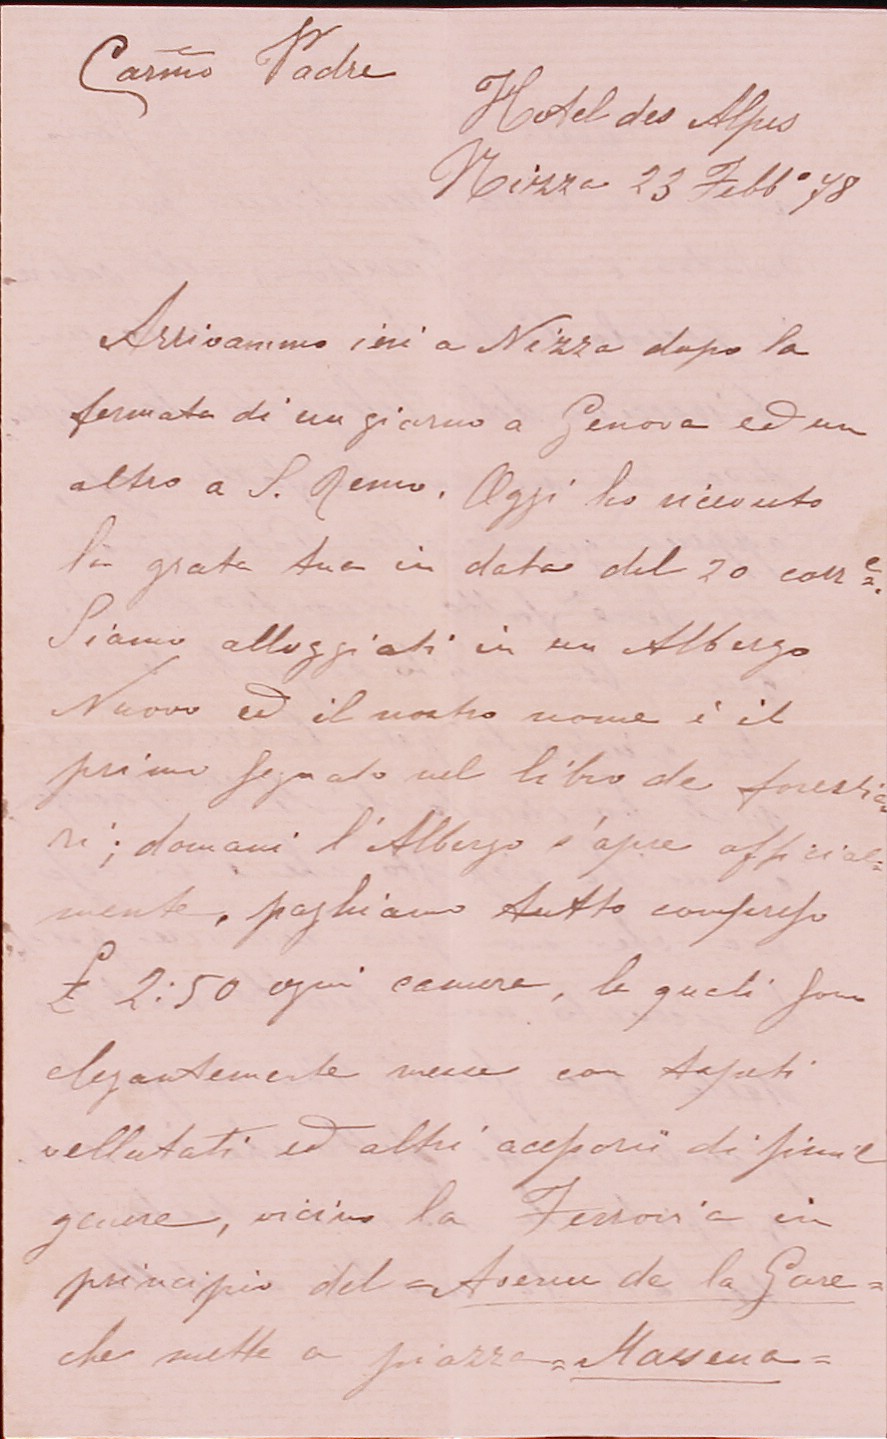 Carmo Padre
Hotel des Alpes
Nizza 23 Febbo 78
Arrivammo ieri a Nizza dopo la
fermata di un giorno a Genova ed un
altro a S. Remo. Oggi ho ricevuto
la grata tua in data del 20 corre.
Siamo alloggiati in un Albergo
Nuovo ed il nostro nome è il
primo segnato nel libro de forestie
ri; domani l'Albergo s'apre official=
mente, paghiamo tutto compreso
£ 2:50 ogni camera, le quali sono
elegantemente messe con tapeti
vellutati ed altri acessorii di simile
genere, vicino la Ferrovia in
principio del =Avenue de la Gare=
che mette a piazza =Massena=